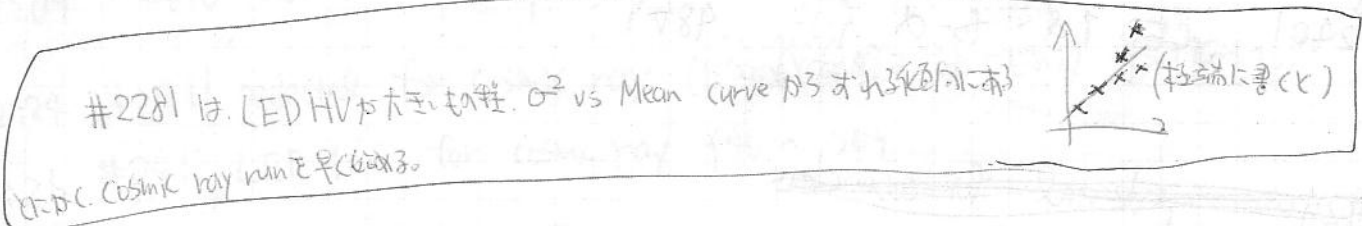 #2281は、LED HVが大きいもの程、σ² vs Mean curveからずれる傾向にある (極端に書くと)
とにかく、cosmic ray runを早く始める。